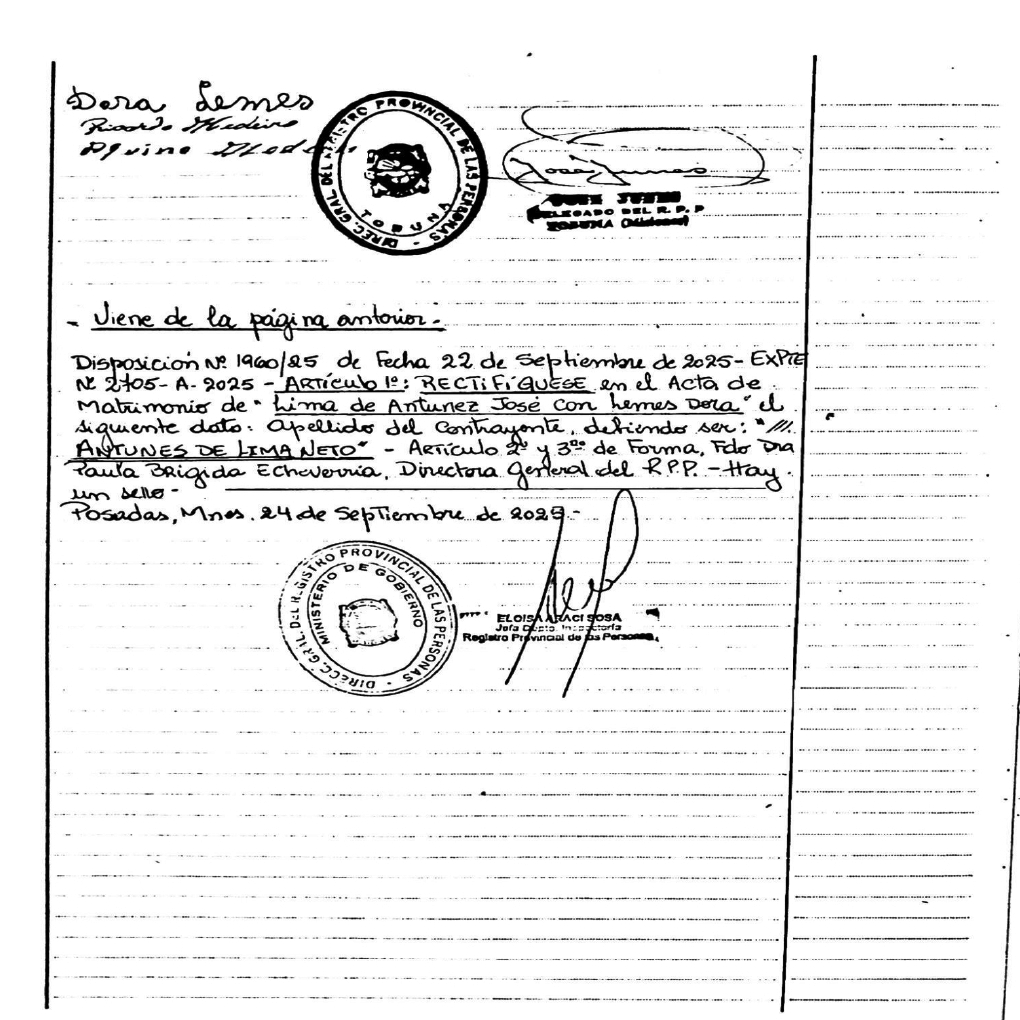 Dora Lemes
Ricardo Medeiro
DIREC. GRAL. DEL REGISTRO PROVINCIAL DE LAS PERSONAS
TOBUNA
DELEGADO DEL R. P. P
TOBUNA (Misiones)
- Viene de la página anterior.-
Disposición Nº 1960/25 de Fecha 22 de Septiembre de 2025 - EXPTE
Nº 2705-A-2025 - ARTÍCULO 1º: RECTIFÍQUESE en el Acta de
Matrimonio de "Lima de Antunez José con Lemes Dora" el
siguiente dato: Apellido del Contrayente, debiendo ser: "///.
ANTUNES DE LIMA NETO" - Artículo 2º y 3º de Forma, Fdo Dra
Paula Brigida Echeverria, Directora General del R.P.P. - Hay
un sello -
Posadas, Mnes. 24 de Septiembre de 2025 -
DIRECC. GRAL. DEL REGISTRO PROVINCIAL DE LAS PERSONAS
MINISTERIO DE GOBIERNO
ELOISA ARACI SOSA
Jefa Depto. Inspectoría
Registro Provincial de las Personas